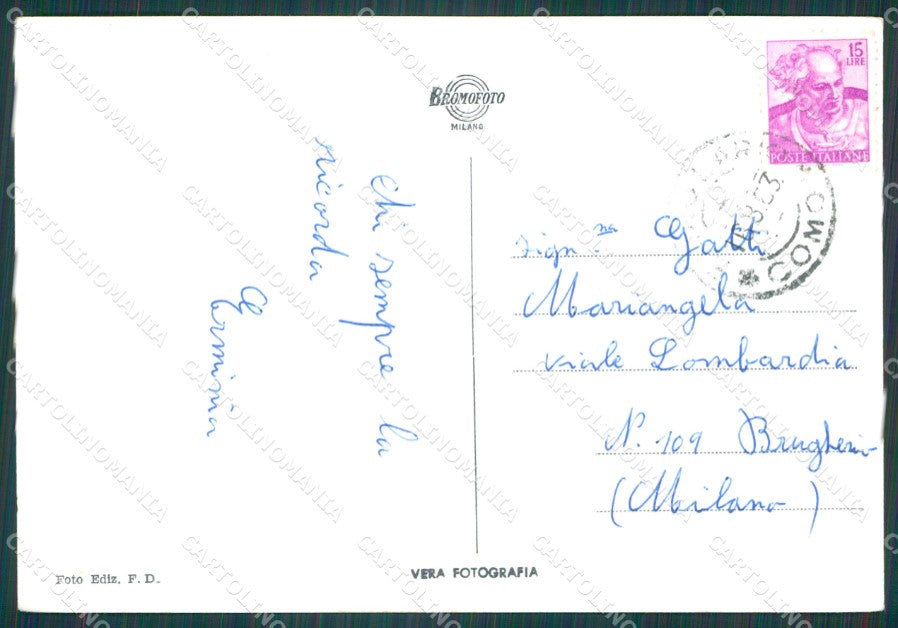 BROMOFOTO
MILANO
15
LIRE
POSTE ITALIANE
COMO
chi sempre la
ricorda
Erminia
sign.na Gatti
Mariangela
viale Lombardia
N. 109 Brugherio
(Milano)
Foto Ediz. F. D.
VERA FOTOGRAFIA
CARTOLINOMANIA